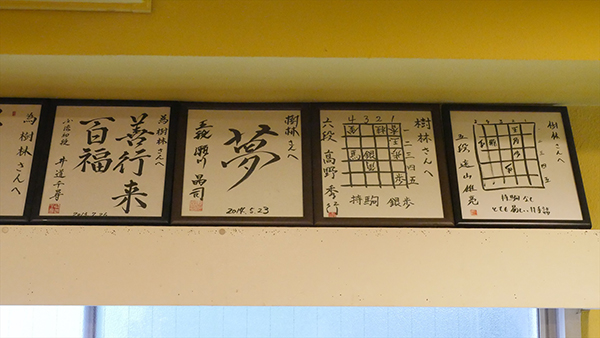 為樹林さんへ
為樹林さんへ
善行来
百福
井道千尋
樹林さんへ
夢
五段 瀬川晶司
2014.5.23
樹林さんへ
4 3 2 1
一二三四五
持駒 銀歩
六段 高野秀行
樹林さんへ
持駒なし
とても難しい11手詰
五段 遠山雄亮